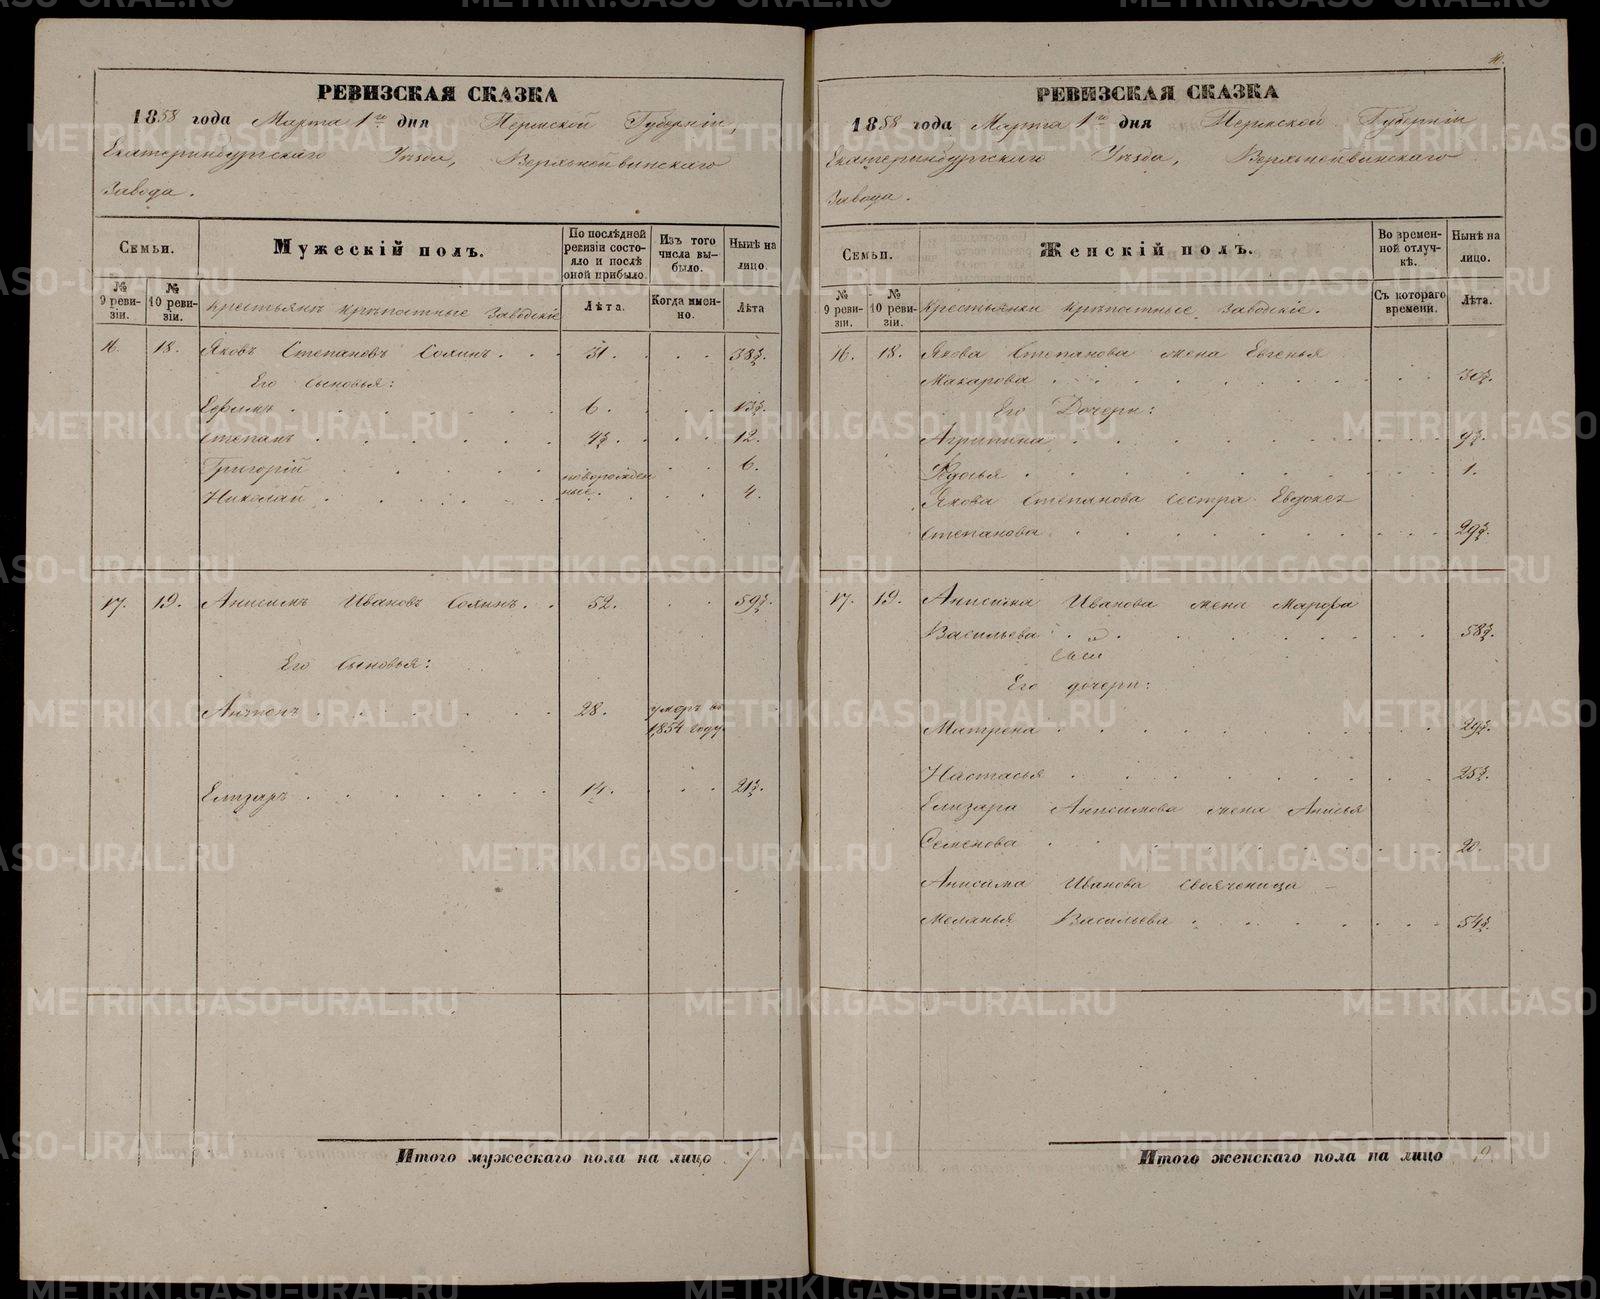 РЕВИЗСКАЯ СКАЗКА
1858 года Марта 1го дня Пермской Губерніи,
Екатеринбургскаго Уѣзда, Верхнейвинскаго
Завода.
Семьи.
Мужескій полъ.
По послѣдней ревизіи состояло и послѣ оной прибыло.
Изъ того числа выбыло.
Нынѣ на лицо.
№ 9 ревизіи.
№ 10 ревизіи.
Крестьянъ крѣпостные Заводскіе
Лѣта.
Когда именно.
Лѣта
16. 18. Яковъ Степановъ Солинъ. 31. 38½.
Его Сыновья:
Ефимъ 6. 13½.
Степанъ 4½. 12.
Григорій новорожден 6.
Николай ные. 4.
17. 19. Анисимъ Ивановъ Солинъ. 52. 59½.
Его Сыновья:
Антонъ 28. умеръ въ
1854 году.
Елизаръ 14. 21½.
Итого мужескаго пола на лицо 7.
РЕВИЗСКАЯ СКАЗКА
1858 года Марта 1го дня Пермской Губерніи
Екатеринбургскаго Уѣзда, Верхнейвинскаго
Завода.
Семьи.
Женскій полъ.
Во временной отлучкѣ.
Нынѣ на лицо.
№ 9 ревизіи.
№ 10 ревизіи.
Крестьянки крѣпостные Заводскіе.
Съ котораго времени.
Лѣта.
16. 18. Якова Степанова жена Евгенья
Макарова 30½.
Его Дочери:
Агрипина 9½.
Ѳдосья 1.
Якова Степанова сестра Евдокея
Степанова 29½.
17. 19. Анисима Иванова жена Марфа
Васильева 58½.
Его дочери:
Матрена 29½.
Настасья 25½.
Елизара Анисимова жена Анисья
Семенова 20.
Анисима Иванова свояченица
Меланья Васильева 54½.
Итого женскаго пола на лицо 9.
METRIKI.GASO-URAL.RU